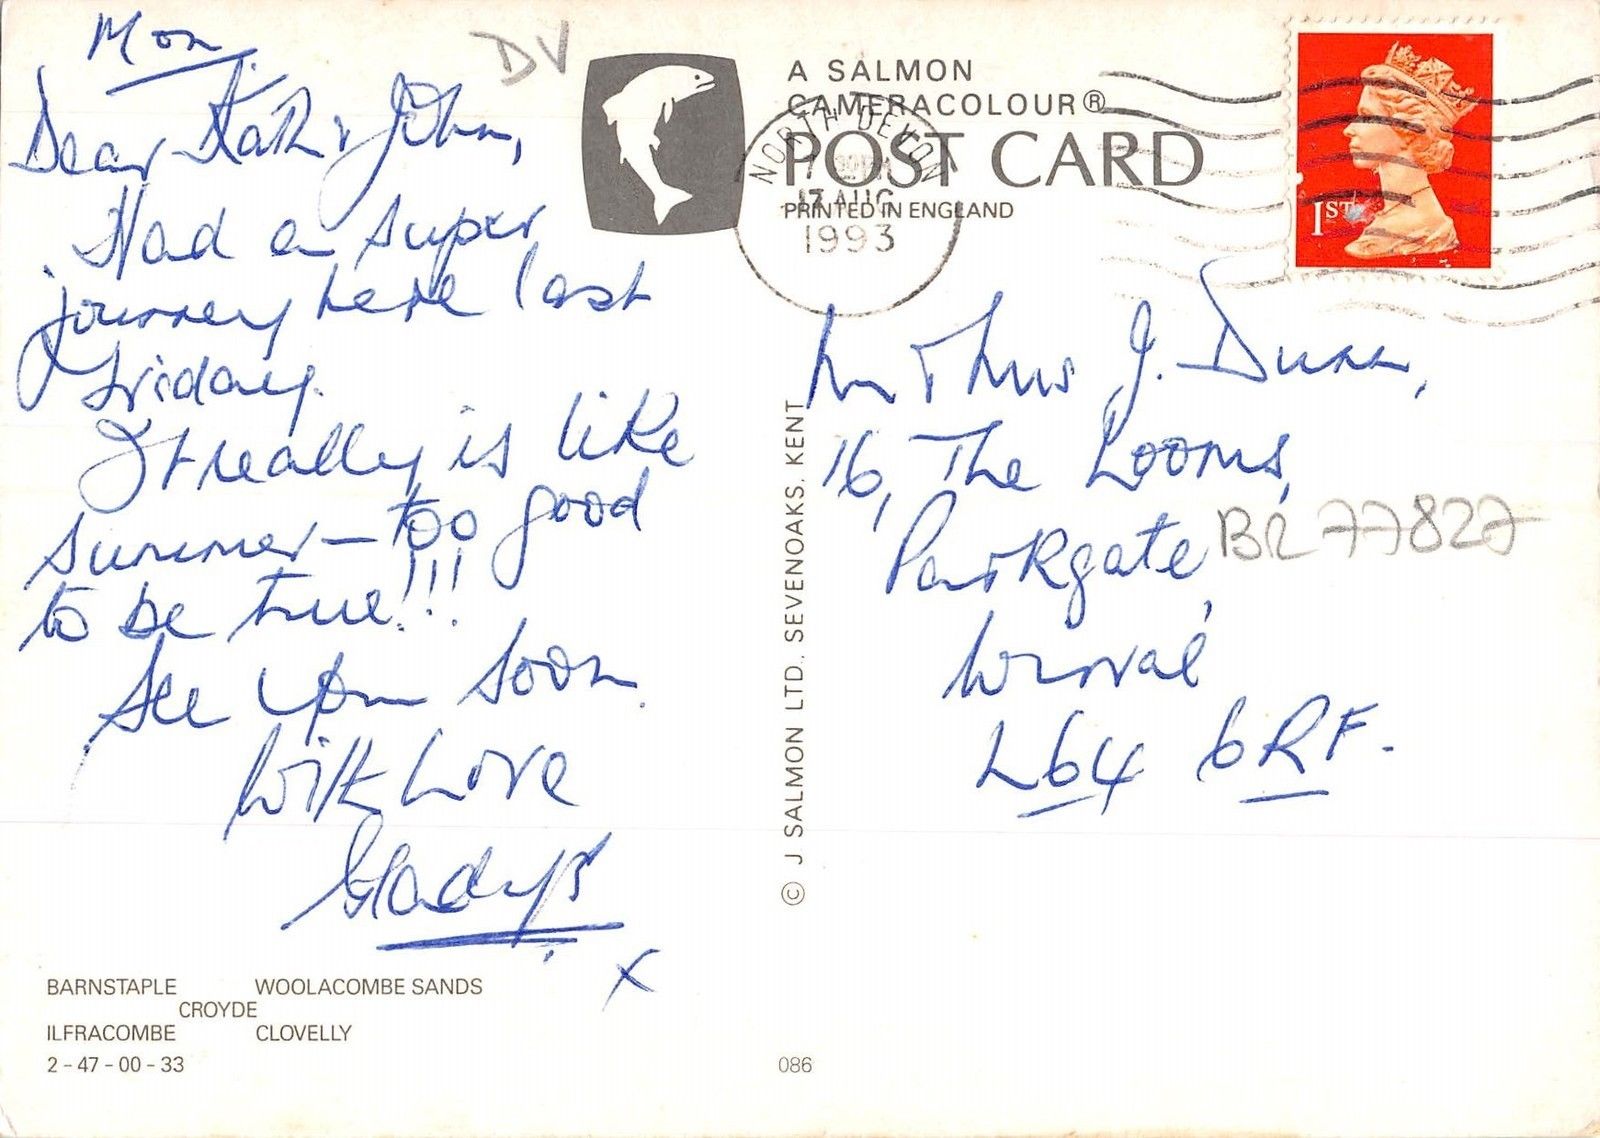 Mon
Dear Kath & John,
Had a super
journey here last
Friday.
It really is like
summer — too good
to be true!!!
See you soon.
With Love
Gladys
x
BARNSTAPLE WOOLACOMBE SANDS
CROYDE
ILFRACOMBE CLOVELLY
2 - 47 - 00 - 33
DV
A SALMON
CAMERACOLOUR®
POST CARD
PRINTED IN ENGLAND
NORTH DEVON
17 AUG
1993
1ST
© J SALMON LTD., SEVENOAKS, KENT
086
Mr & Mrs J. Dunn,
16, The Looms,
Parkgate,
Wirral
L64 6RF.
BR 77827